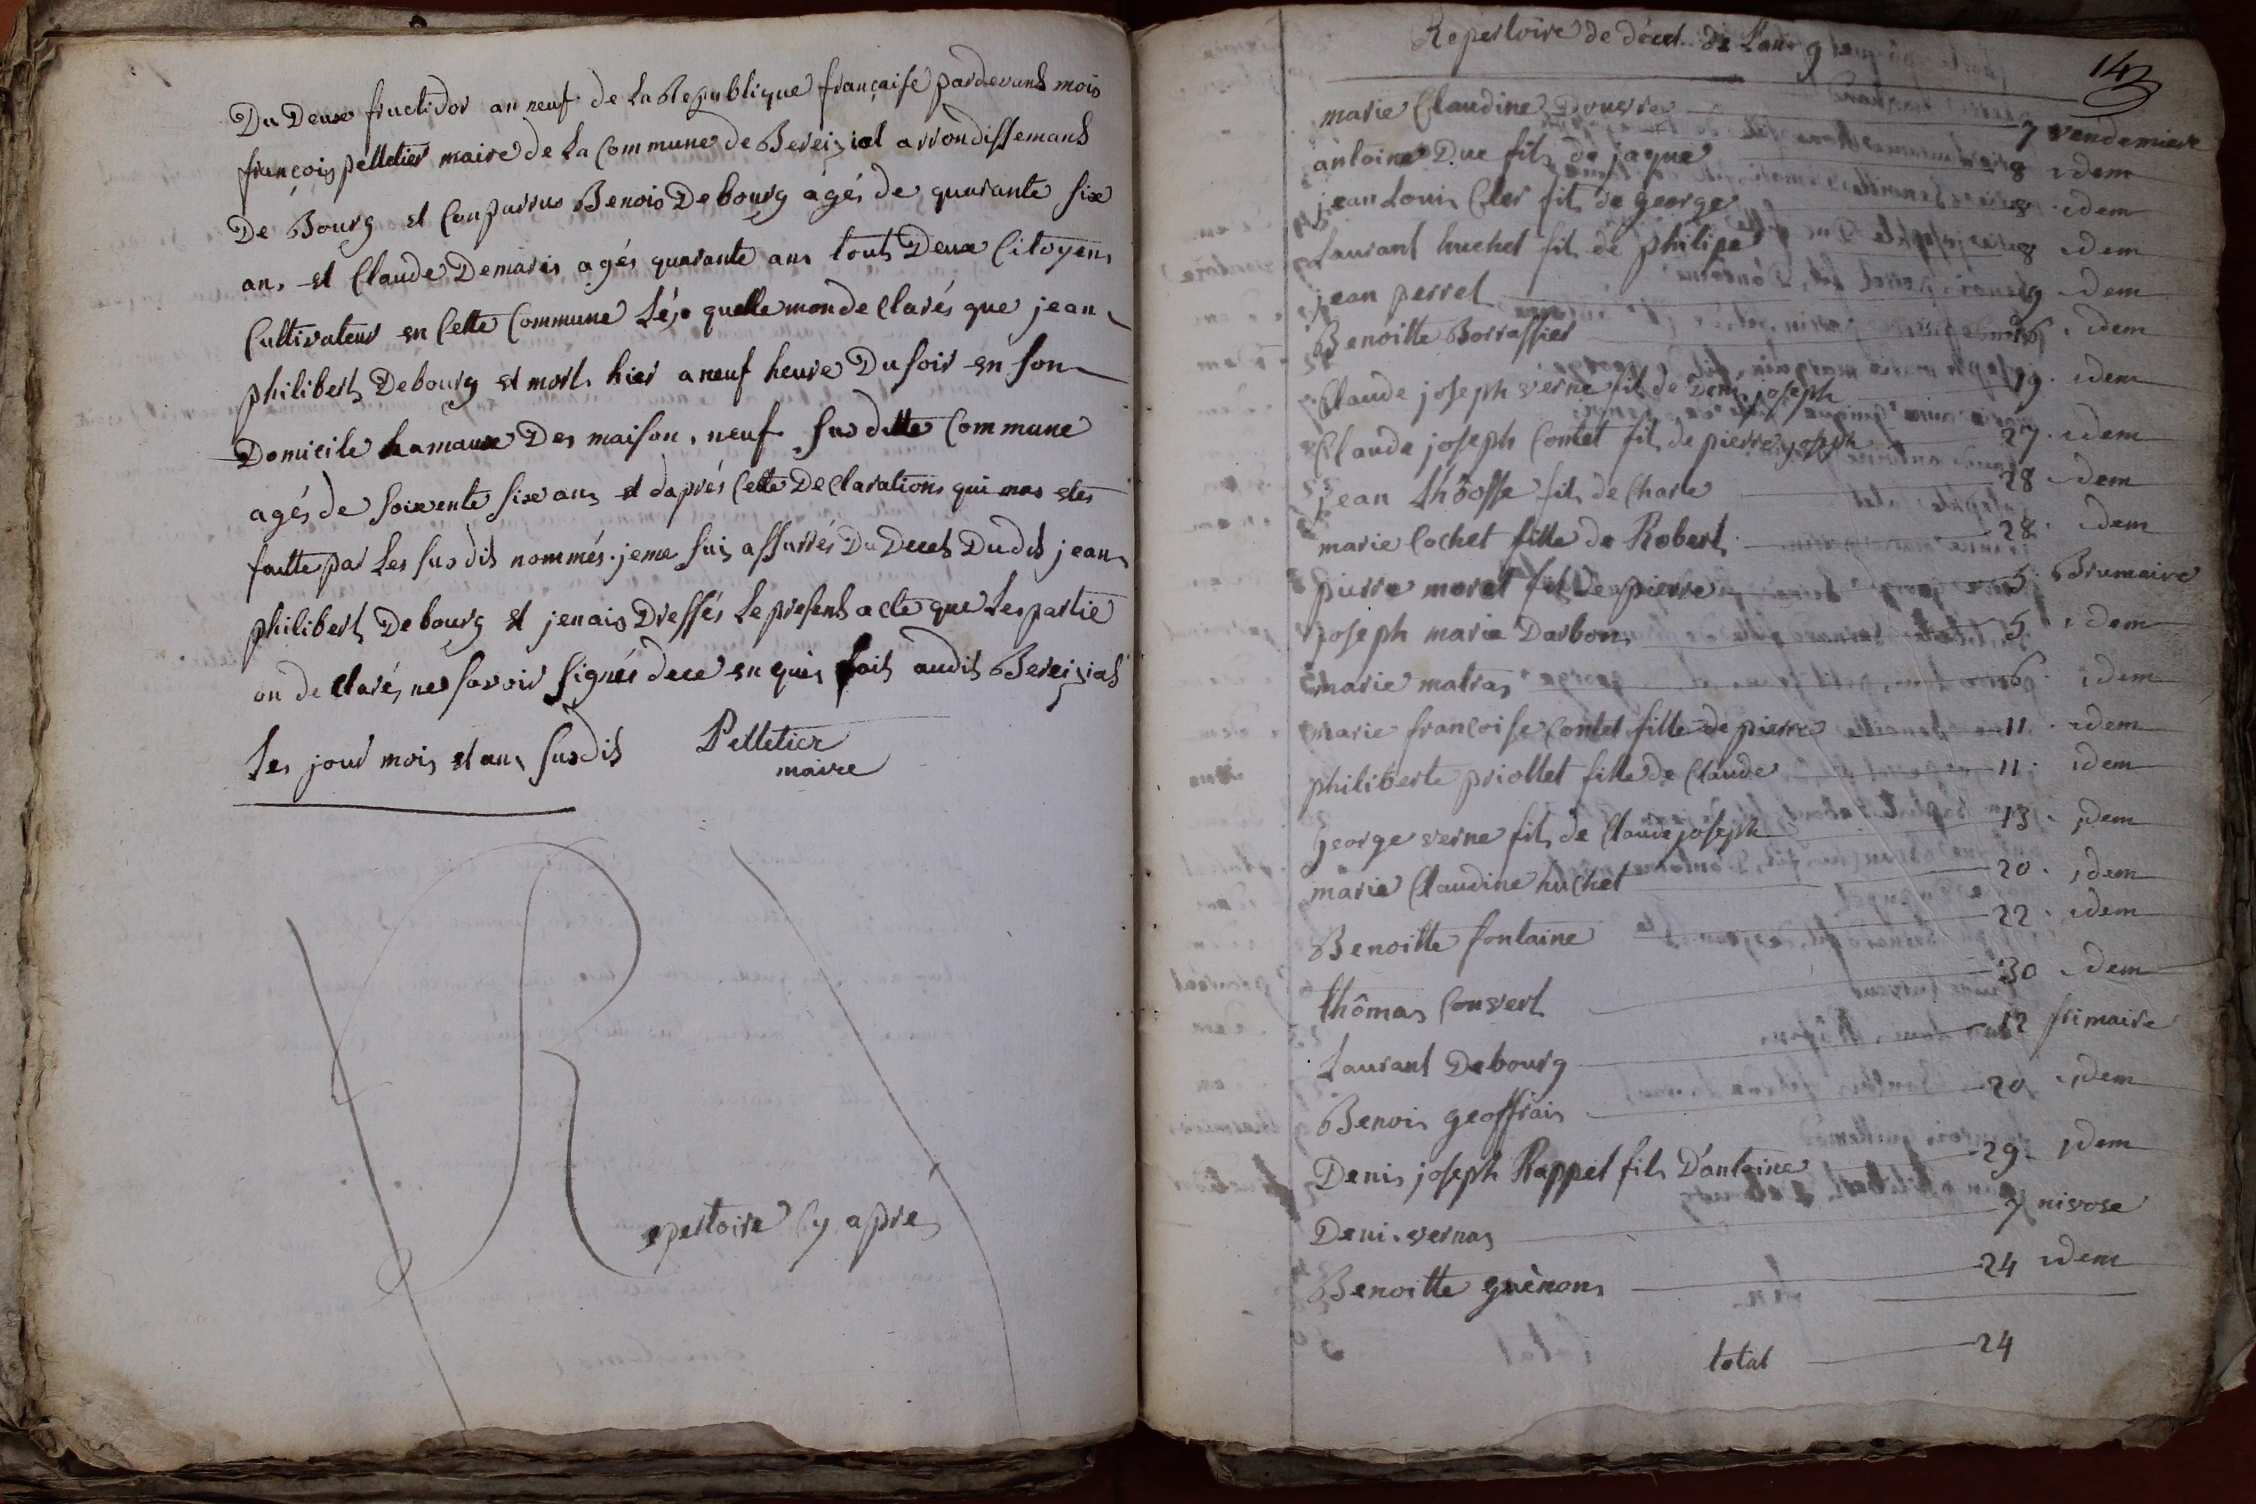 Du Deux fructidor an neuf de La Republique française pardevant mois
françois pelletier maire de La Commune de Bereiziat arrondissemant
De Bourg et Conparrus Benois Debourg agés de quarante six
ans et Claude Demaris agés quarante ans tout Deux Citoyens
Cultivateur en Cette Commune Les quelle mon declarés que jean
philibert Debourg et mort hier a neuf heure Du soir en son
Domicile hamaux Des maisons neuf susditte Commune
agés de soixente six ans et daprés Cette Declarations qui mas etes
faitte par Les susdit nommés jeme suis assurrés Du Deces Dudit jean
philibert Debourg et jenais Dressés Le present acte que Les partie
on declarés ne savoir signés dece en quis fait audit Bereiziat
Les jour mois et ans susdit Pelletier
maire
Repertoire Cy apres
Repertoire de déces de Lan 9
143
marie Claudine Douvre 7 vendemiere
antoine Duc fils de jaque 8 idem
jean Louis Cler fils de george 8 idem
Laurant huchet fils de philipe 8 idem
jean perret 9 idem
Benoitte Borrassier 16 idem
Claude joseph verne fils de Denis joseph 19 idem
Claude joseph Contet fils de pierre joseph 27 idem
jean Lhôosse fils de Charle 28 idem
marie Cochet fille de Robert 28 idem
pierre moret fils de pierre 5 Brumaire
joseph marie Darbon 5 idem
marie matras 6 idem
marie francoise Contet fille de pierre 11 idem
philiberte priollet fille de Claude 11 idem
george verne fils de Claude joseph 13 idem
marie Claudine huchet 20 idem
Benoitte fontaine 22 idem
thômas Convert 30 idem
Laurant Debourg 12 frimaire
Benois geoffrais 20 idem
Denis joseph Rappet fils D'antoine 29 idem
Denis vernas 7 nivose
Benoitte guènons 24 idem
total 24